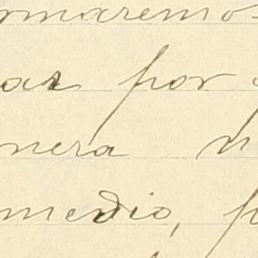 maremos
ar por
nera
medio, p